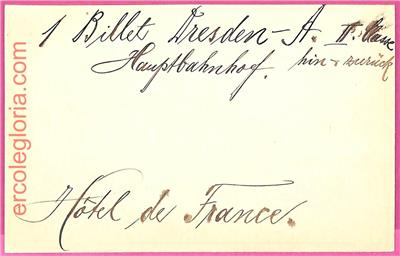 1 Billet Dresden-A. II. Classe
Hauptbahnhof. hin + zurück
Hôtel de France.
ercolegloria.com